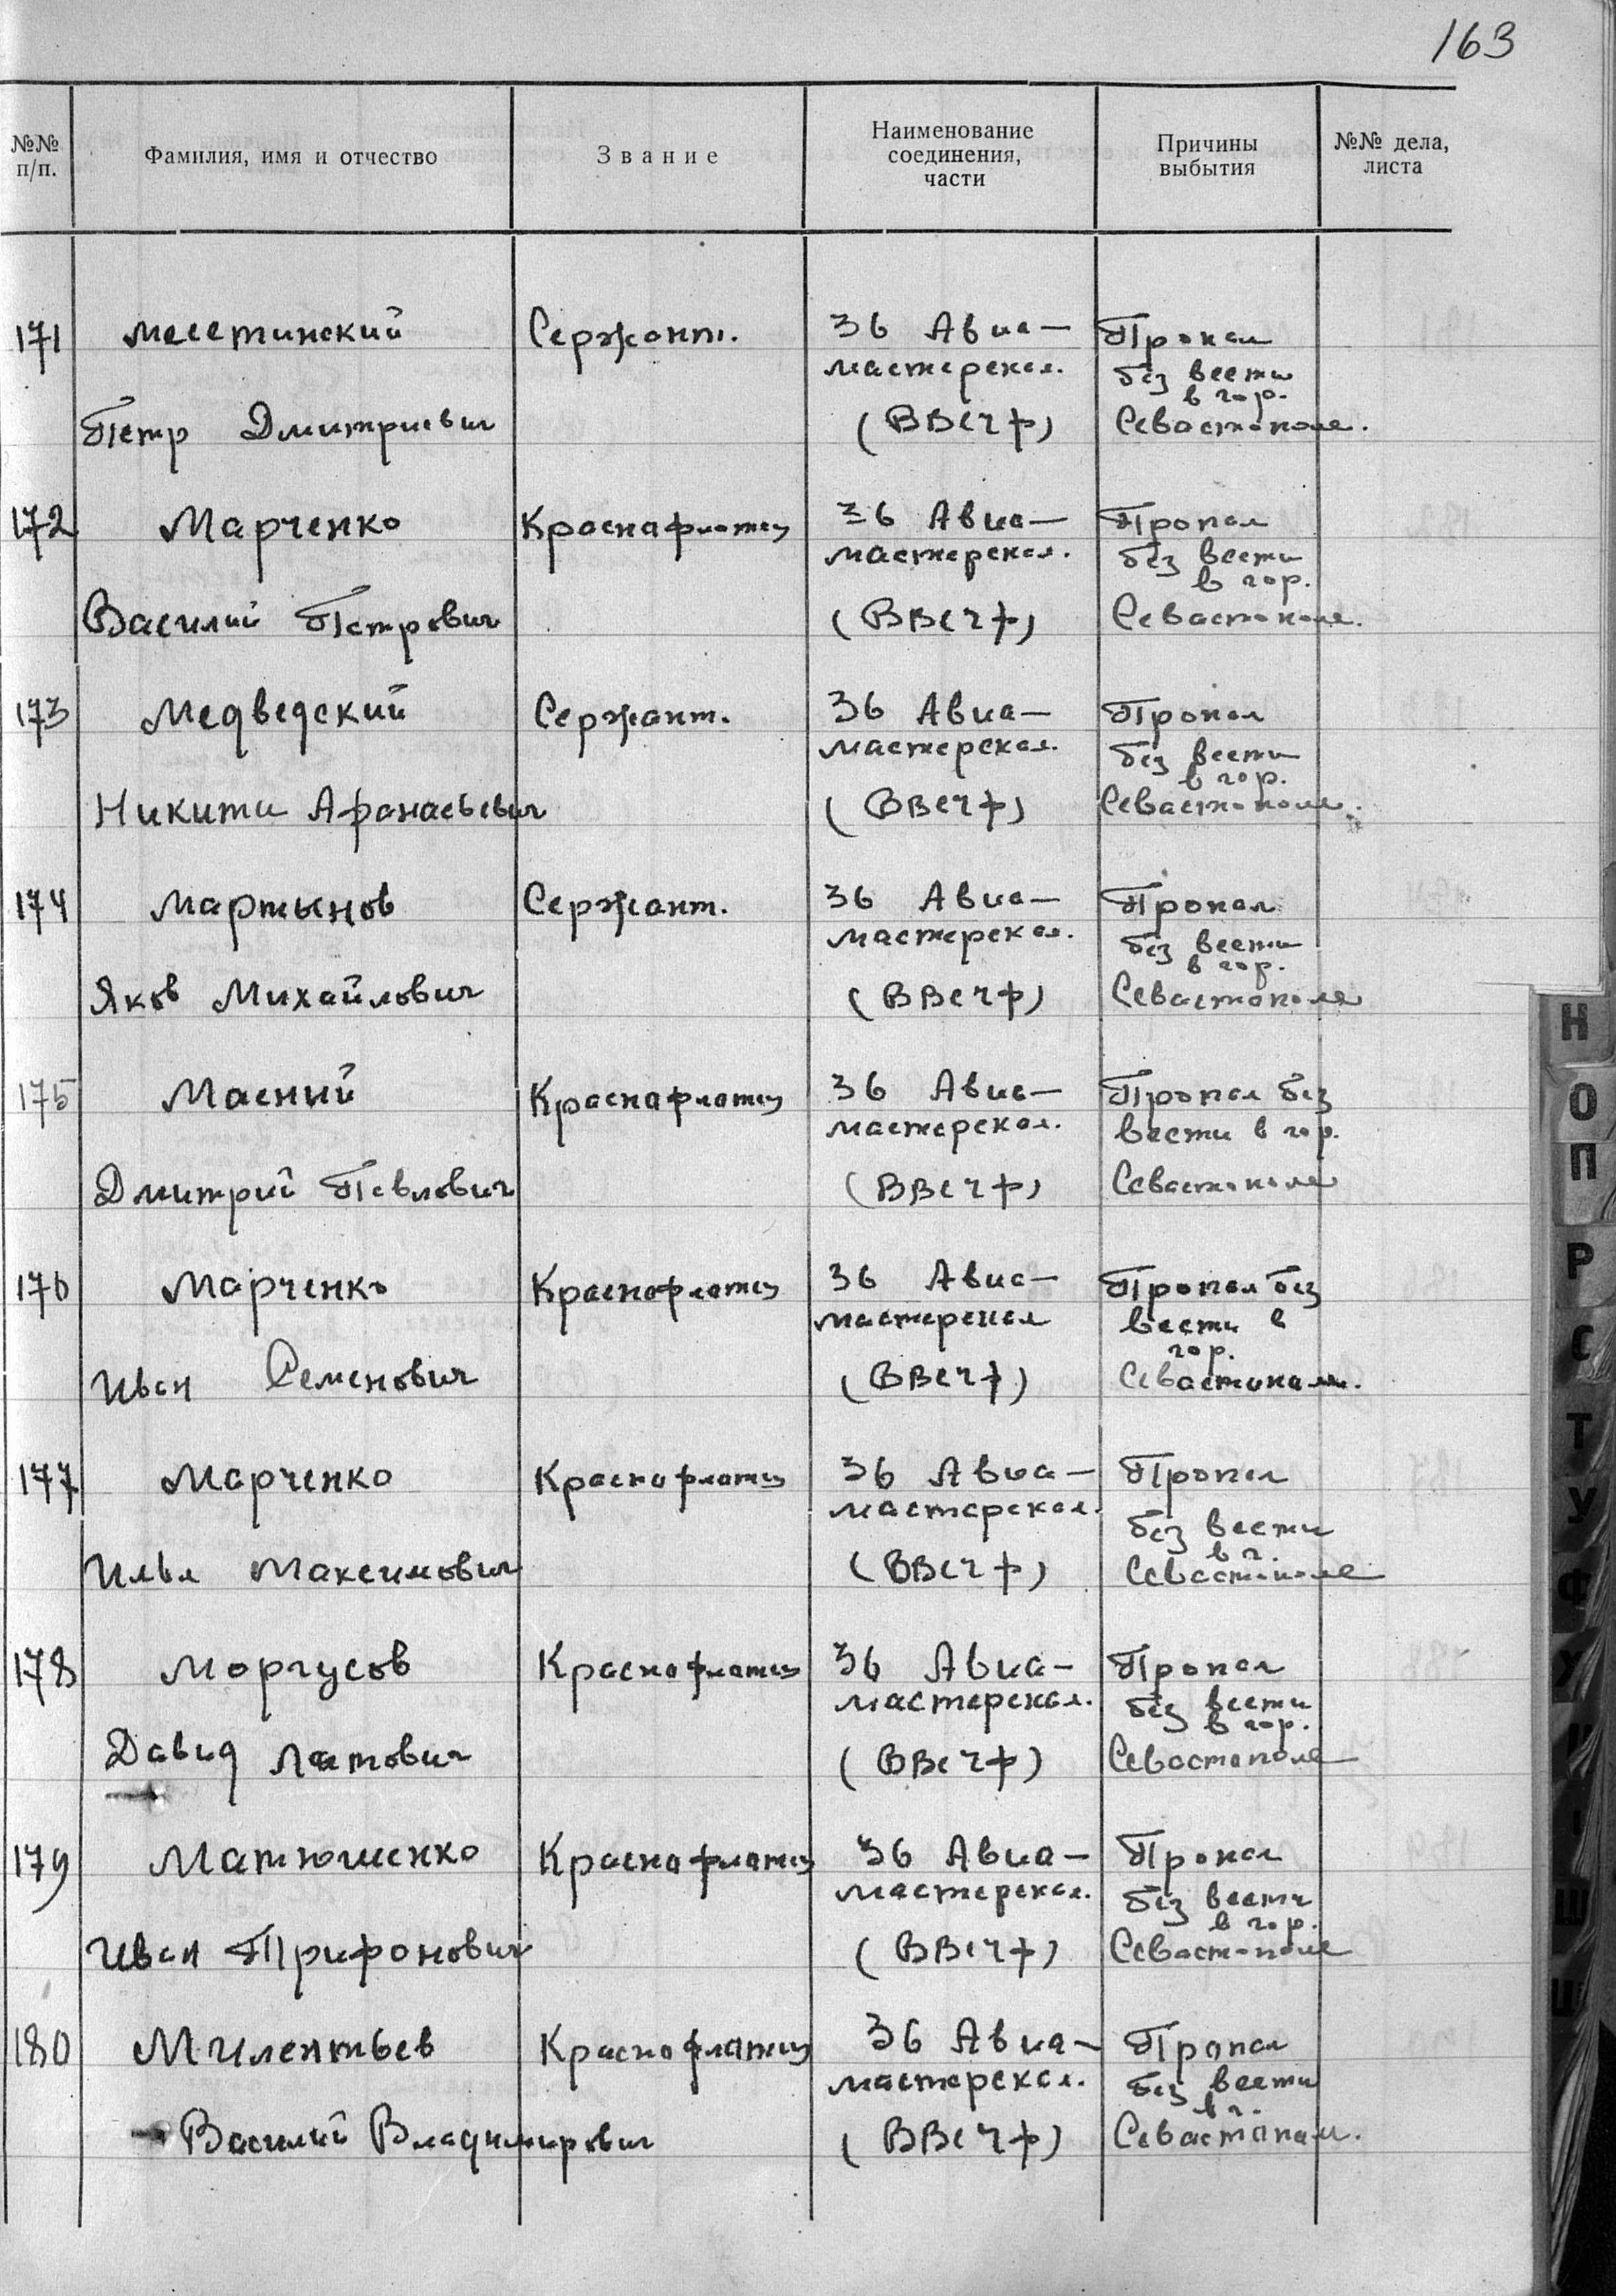 163
№№ п/п. Фамилия, имя и отчество Звание Наименование соединения, части Причины выбытия №№ дела, листа
171 Месетинский Сержант. 36 Авиа- Пропал
мастерскал. без вести
в гор.
Петр Дмитриевич (ВВСЧФ) Севастополе.
172 Марченко Краснафлотец 36 Авиа- Пропал
мастерскал. без вести
в гор.
Василий Петрович (ВВСЧФ) Севастополе.
173 Медведский Сержант. 36 Авиа- Пропал
мастерскал. без вести
в гор.
Никита Афанасьевич (ВВСЧФ) Севастополе.
174 Мартынов Сержант. 36 Авиа- Пропал
мастерскал. без вести
в гор.
Яков Михайлович (ВВСЧФ) Севастополе
175 Масний Краснафлотец 36 Авиа- Пропал без
мастерскал. вести в гор.
Дмитрий Павлович (ВВСЧФ) Севастополе
176 Марченко Краснофлотец 36 Авиа- Пропал без
мастерскал вести в
гор.
Иван Семенович (ВВСЧФ)
177 Марченко Краснофлотец 36 Авиа- Пропал
мастерскал. без вести
в г.
Илья Максимович (ВВСЧФ) Севастополе
178 Моргусов Краснофлотец 36 Авиа- Пропал
мастерскал. без вести
в гор.
Давид (ВВСЧФ) Севастополе
179 Матюшенко Краснофлотец 36 Авиа- Пропал
мастерскал. без вести
в гор.
Иван Трифонович (ВВСЧФ) Севастополе
180 Милентьев Краснофлотец 36 Авиа- Пропал
мастерскал. без вести
в г.
Василий Владимирович (ВВСЧФ)
Н
О
П
Р
С
Т
У
Ф
Х
Ш